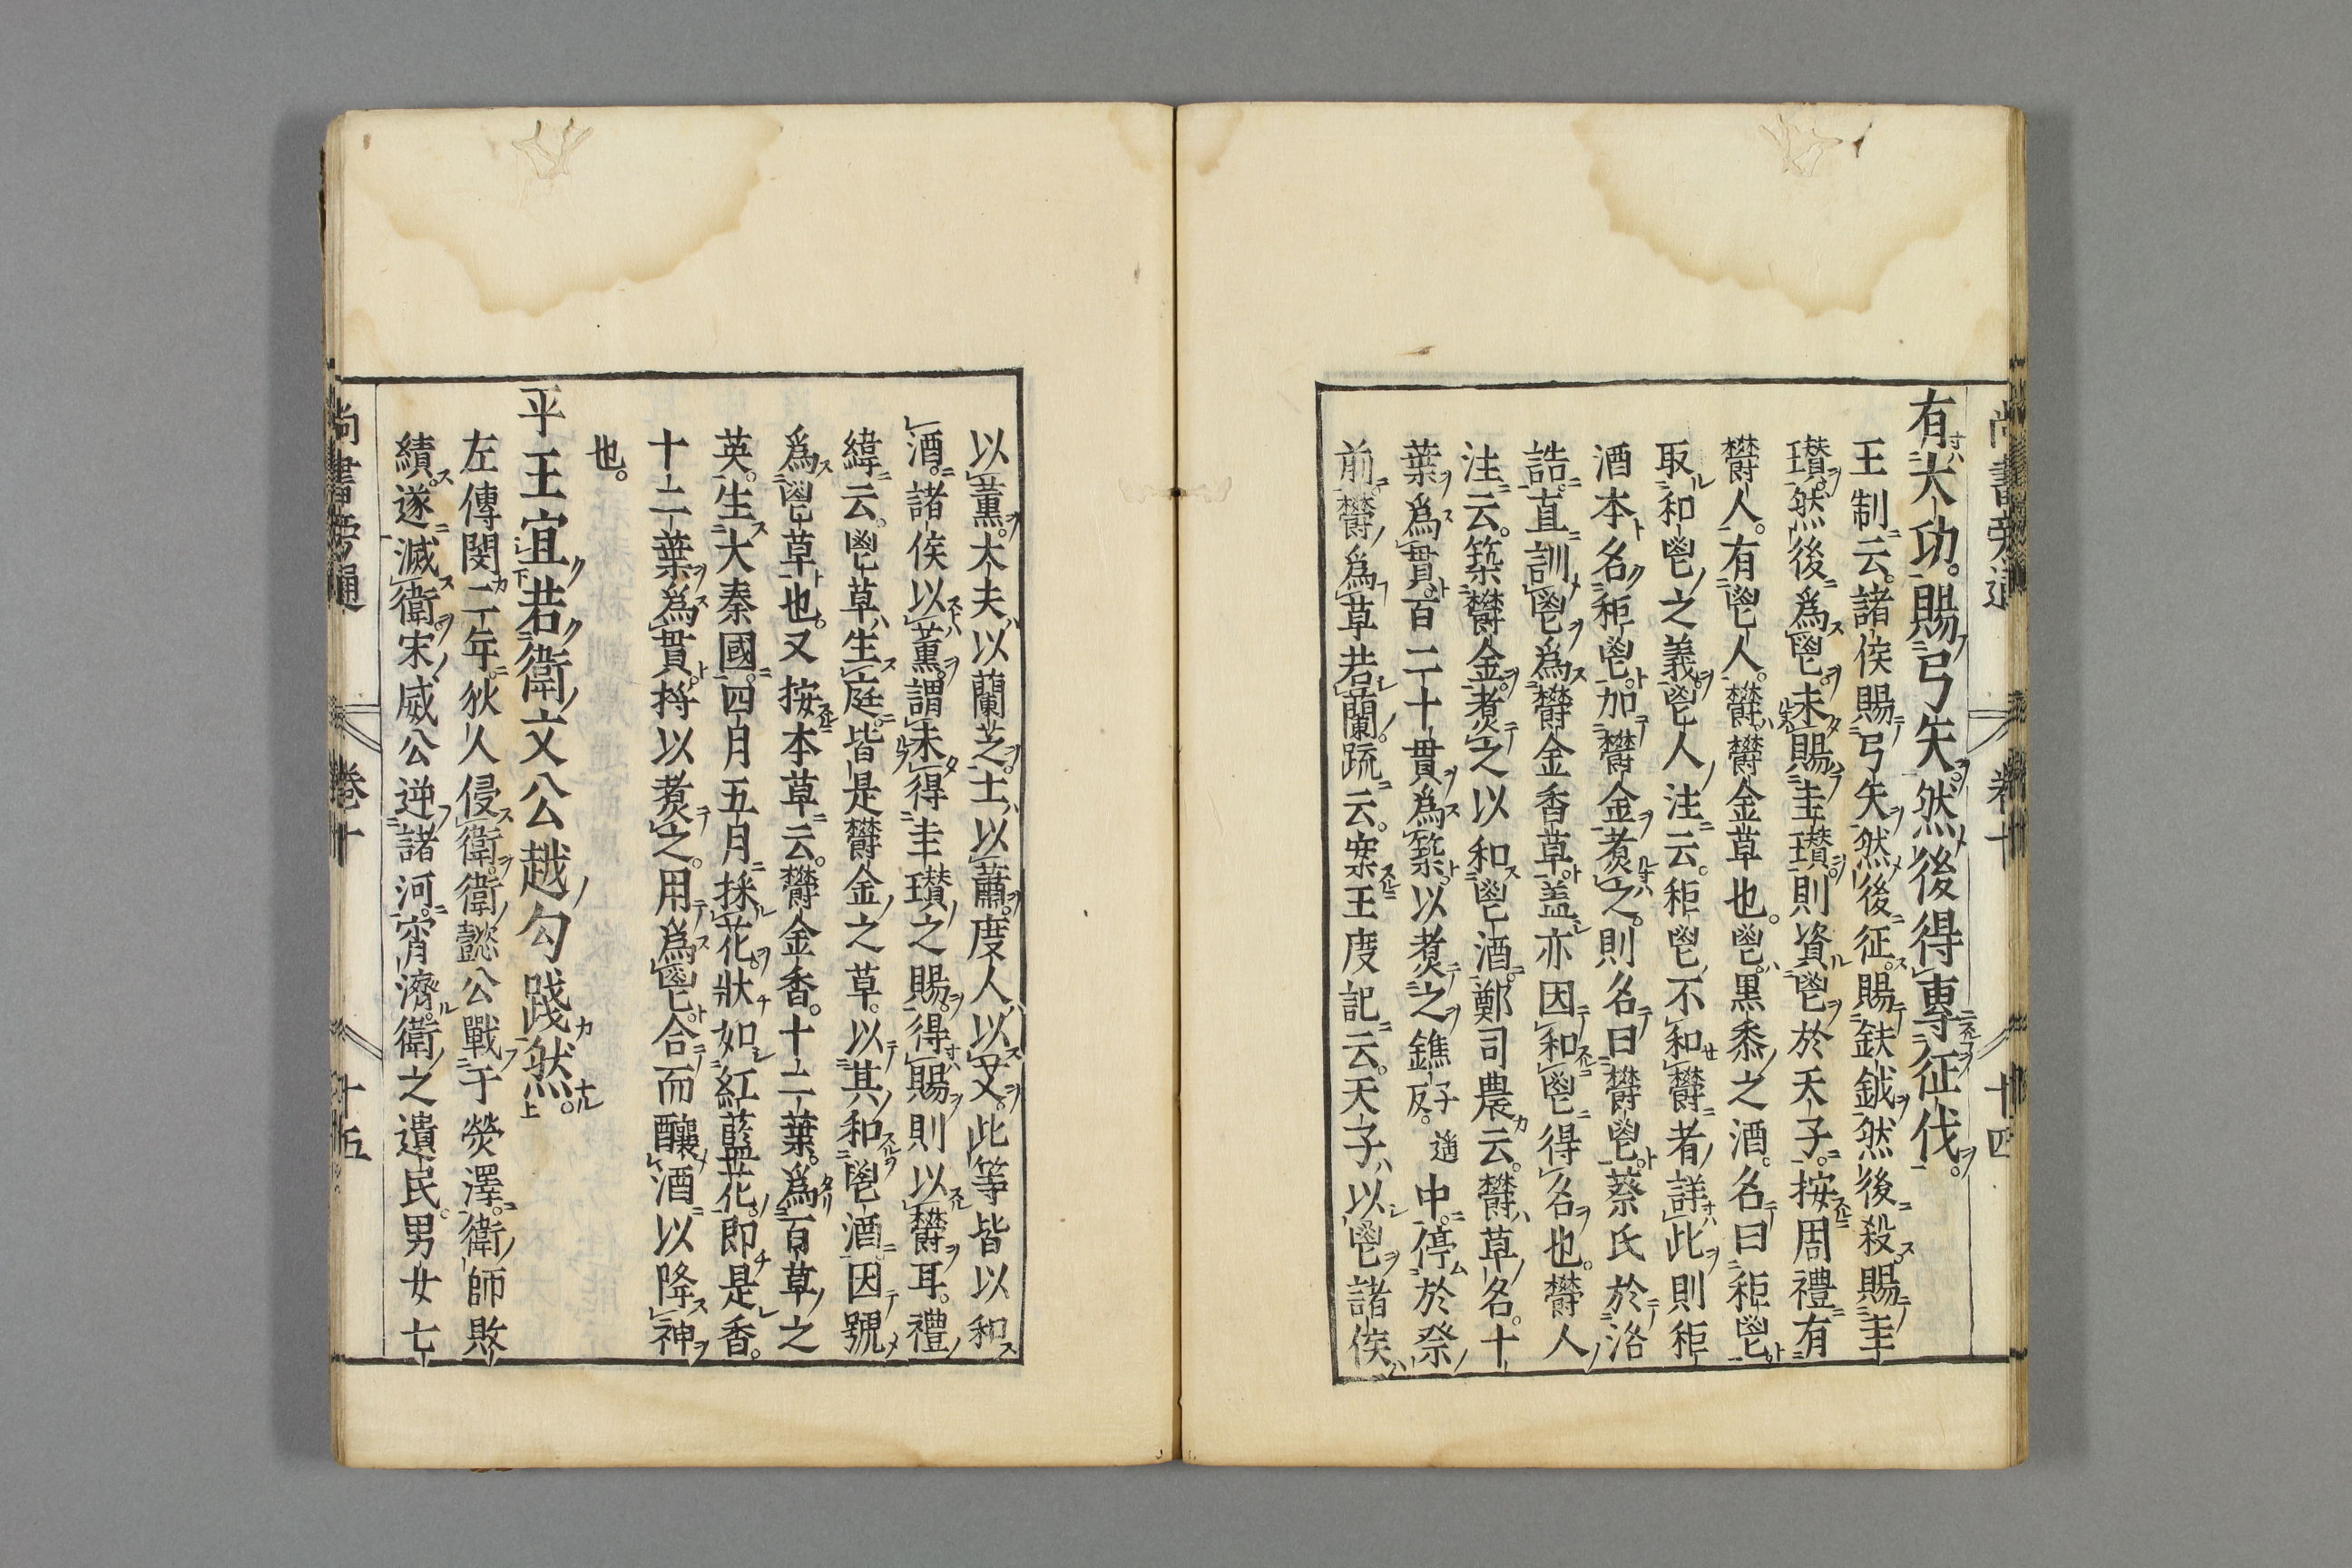 尚書旁通 卷十 十四
有大功。賜弓矢。然後得專征伐。
王制云。諸侯賜弓矢然後征。賜鈇鉞然後殺賜圭
瓚。然後爲鬯。未賜圭瓚。則資鬯於天子。按周禮有
鬱人。有鬯人。鬱鬱金草也。鬯黒黍之酒。名曰秬鬯
取和鬯之義。鬯人注云。秬鬯不和鬱者詳此則秬
酒本名秬鬯。加鬱金煑之。則名曰鬱鬯。蔡氏於洛
誥。直訓鬯爲鬱金香草。盖亦因和鬯得名也。鬱人
注云。築鬱金。煑之以和鬯酒。鄭司農云。鬱草名。十
葉爲貫。百二十貫爲築。以煑之鐎子遥反。中。停於祭
前。鬱爲草若蘭。疏云。案王度記云。天子以鬯諸侯
以薫。大夫以蘭芝。士以蕭。度人以艾。此等皆以和
酒。諸侯以薫。謂未得圭瓚之賜。得賜則以鬱耳。禮
緯云。鬯草生庭。皆是鬱金之草。以其和鬯酒。因號
爲鬯草也。又按本草云。鬱金香。十二葉。爲百草之
英。生大秦國。四月五月採花。狀如紅藍花。即是香。
十二葉爲貫。捋以煑之。用爲鬯。合而釀酒以降神
也。
平王宜若衛文公越勾踐然。
左傳閔二年。狄人侵衛。衛懿公戰于熒澤。衛師敗
績。遂滅衛。宋威公逆諸河。宵濟。衛之遺民。男女七
尚書旁通 卷十 十五